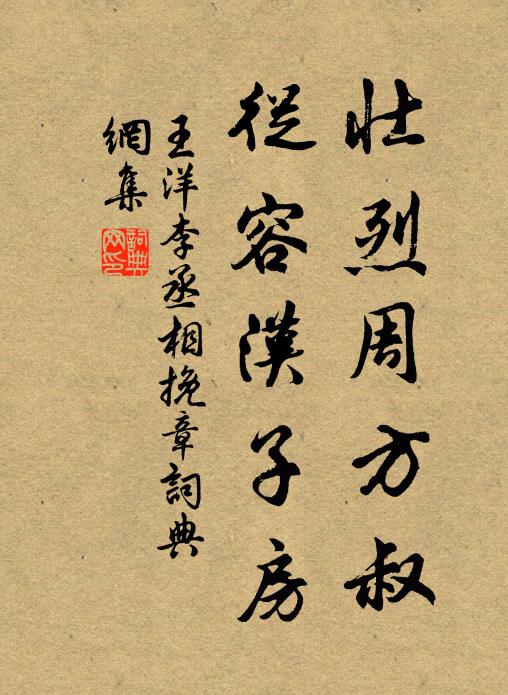 壯烈周方叔
從容漢子房
王洋李丞相挽章詞典
網集
詞典
网印